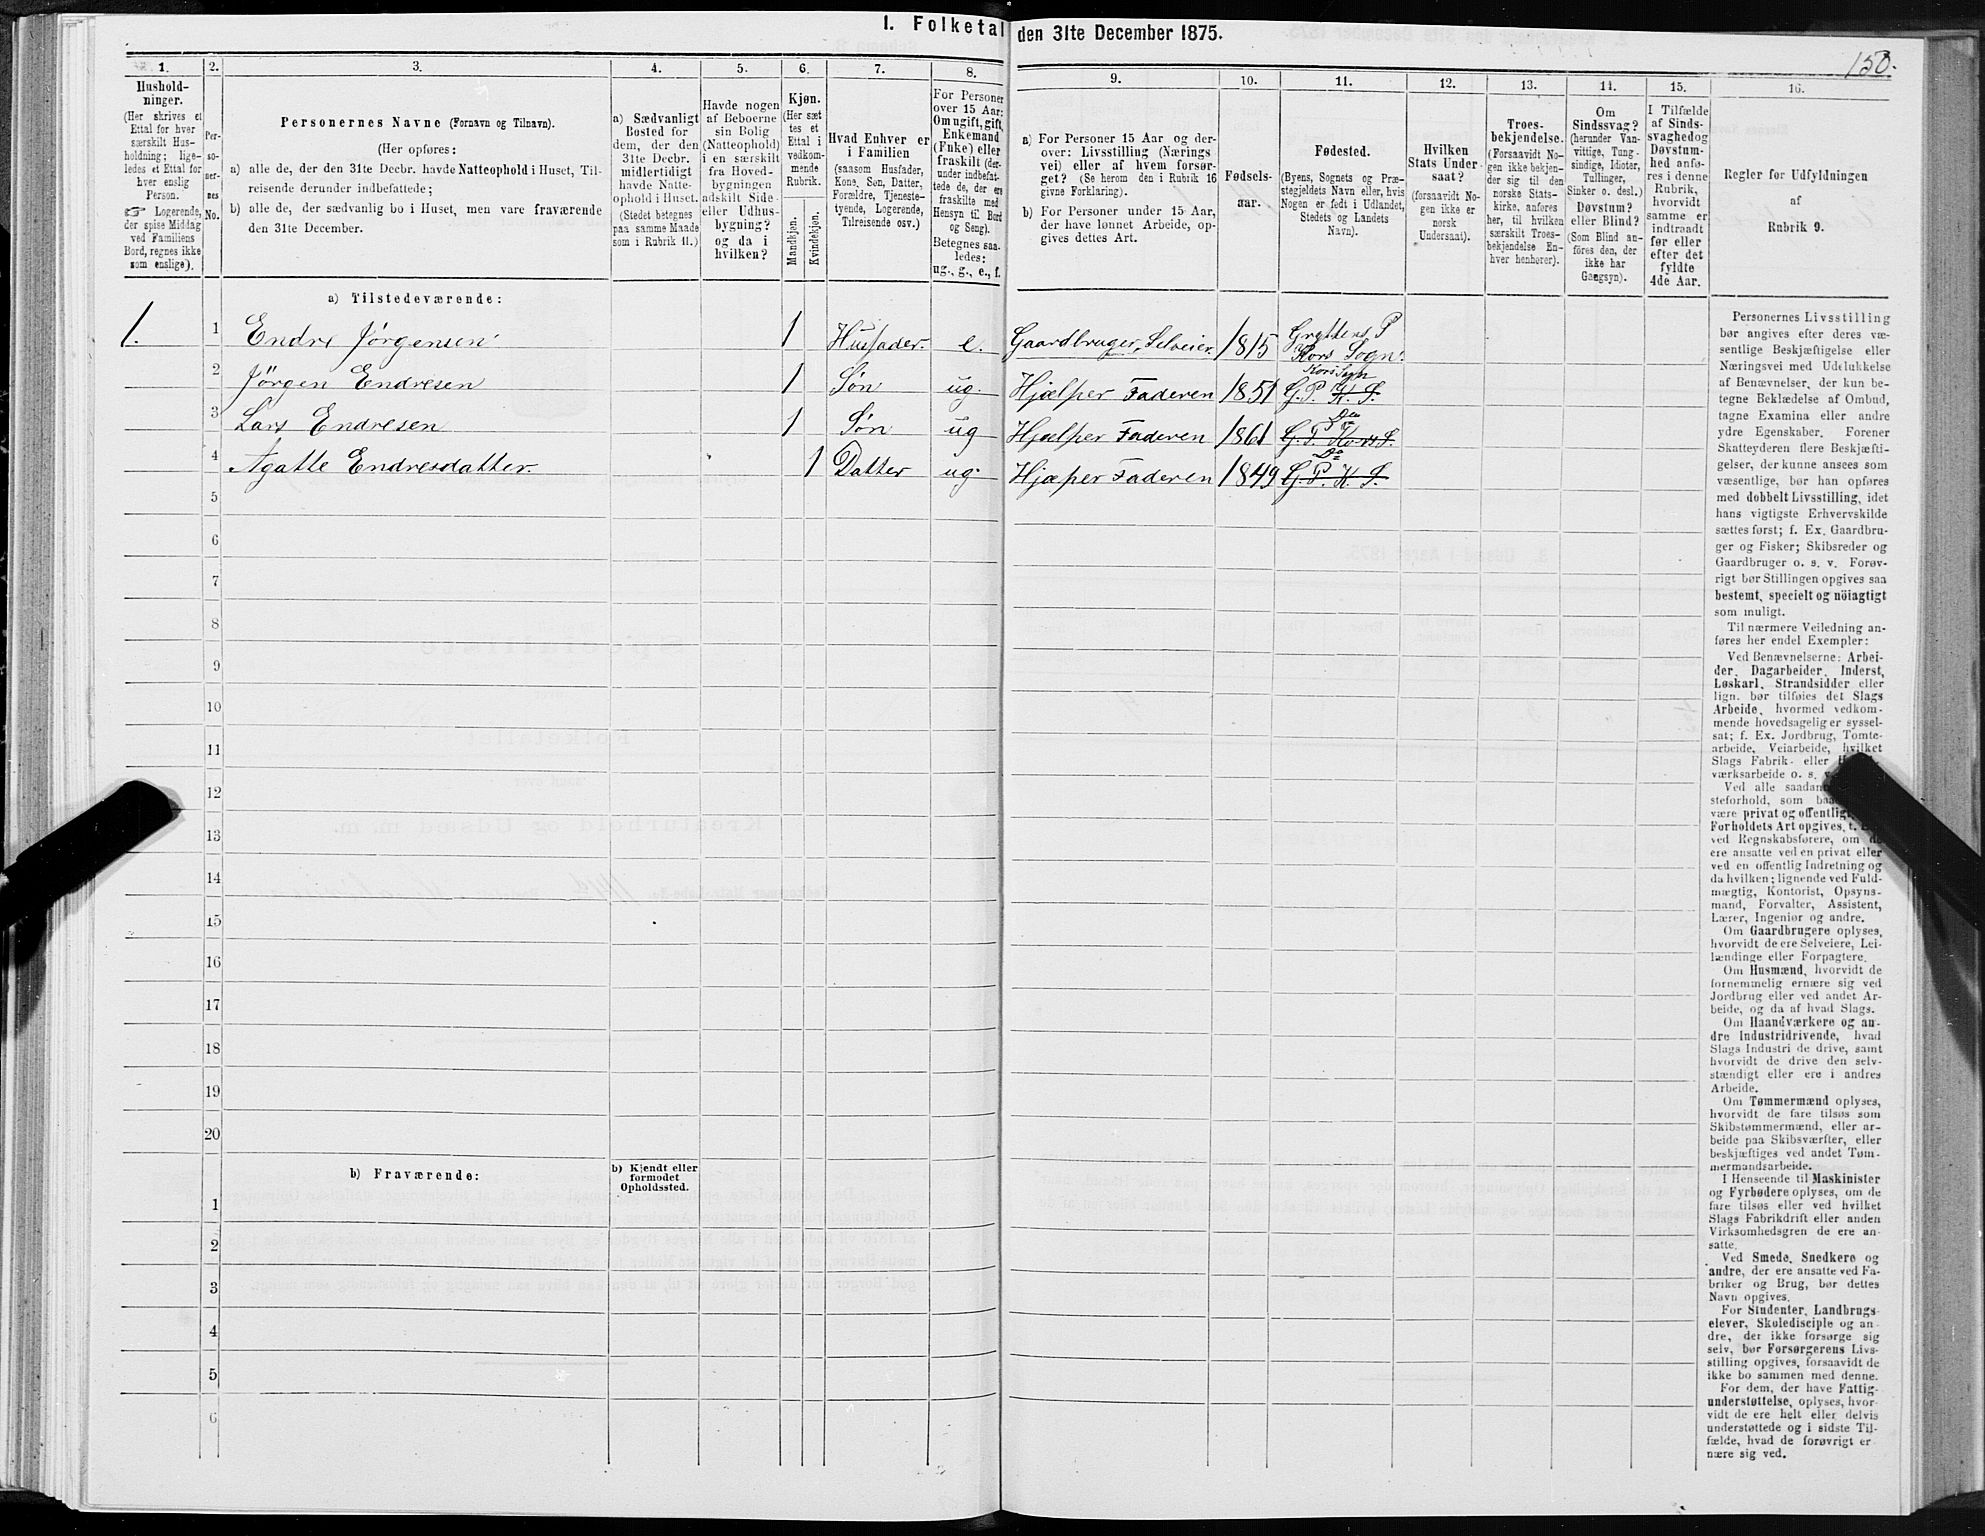 I. Folketal den 31te December 1875.
150.
1.
Hushold-
ninger.
(Her skrives et
Ettal for hver
særskilt Hus-
holdning; lige-
ledes et Ettal for
hver enslig
Person.
☞ Logerende,
der spise Middag
ved Familiens
Bord, regnes ikke
som enslige).
2.
Per-
so-
ner-
nes
No.
3.
Personernes Navne (Fornavn og Tilnavn).
(Her opføres:
a) alle de, der den 31te Decbr. havde Natteophold i Huset, Til-
reisende derunder indbefattede;
b) alle de, der sædvanlig bo i Huset, men vare fraværende
den 31te December.
4.
a) Sædvanligt
Bosted for
dem, der den
31te Decbr.
midlertidigt
havde Natte-
ophold i Huset.
(Stedet betegnes
paa samme Maade
som i Rubrik 11.)
5.
Havde nogen
af Beboerne
sin Bolig
(Natteophold)
i en særskilt
fra Hoved-
bygningen
adskilt Side-
eller Udhus-
bygning?
og da i
hvilken?
6.
Kjøn.
(Her sæt
tes et
Ettal i
vedkom-
mende
Rubrik.
Mandkjøn.
Kvindekjøn.
7.
Hvad Enhver er
i Familien
(saasom Husfader,
Kone, Søn, Datter,
Forældre, Tjeneste-
tyende, Logerende,
Tilreisende osv.)
8.
For Personer
over 15 Aar:
Om ugift, gift,
Enkemand
(Enke) eller
fraskilt (der-
under indbefat-
tede de, der ere
fraskilte med
Hensyn til Bord
og Seng).
Betegnes saa-
ledes:
ug., g., e., f.
9.
a) For Personer 15 Aar og der-
over: Livsstilling (Nærings
vei) eller af hvem forsør-
get? (Se herom den i Rubrik 16
givne Forklaring).
b) For Personer under 15 Aar,
der have lønnet Arbeide, op-
gives dettes Art.
10.
Fødsels-
aar.
11.
Fødested.
(Byens, Sognets og Præ-
stegjeldets Navn eller, hvis
Nogen er født i Udlandet,
Stedets og Landets
Navn).
12.
Hvilken
Stats Under-
saat?
(forsaavidt No-
gen ikke er
norsk
Undersaat).
13.
Troes-
bekjendelse.
(Forsaavidt No-
gen ikke bekjen-
der sig til den
norske Stats-
kirke, anføres
her, til hvilken
særskilt Troes-
bekjendelse En-
hver henhører).
14.
Om
Sindssvag?
(herunder Van-
vittige, Tung-
sindige, Idioter,
Tullinger,
Sinker o. desl.)
Døvstum?
eller Blind?
(Som Blind an-
føres den, der
ikke har
Gangsyn).
15.
I Tilfælde
af Sinds-
svaghed og
Døvstum-
hed anfø-
res i denne
Rubrik,
hvorvidt
samme er
indtraadt
før eller
efter det
fyldte
4de Aar.
16.
Regler for Udfyldningen
af
Rubrik 9.
a) Tilstedeværende:
1. 1 Endre Jørgensen 1 Husfader. e. Gaardbruger, Selveier. 1815 Gryttens P Kors Sogn.
2 Jørgen Endresen 1 Søn ug. Hjælper Faderen 1851 G. P. K. S. Kors Sogn
3 Lars Endresen 1 Søn ug Hjælper Faderen 1861 G. P. Kors S. Do
4 Agatte Endresdatter 1 Datter ug. Hjæper Faderen 1849 G. P. K. S. Do
5
6
7
8
9
10
11
12
13
14
15
16
17
18
19
20
b) Fraværende:
b) Kjendt eller
formodet
Opholdssted.
1
2
3
4
5
6
Personernes Livsstilling
bør angives efter deres væ-
sentlige Beskjæftigelse eller
Næringsvei med Udelukkelse
af Benævnelser, der kun be-
tegne Beklædelse af Ombud,
tagne Examina eller andre
ydre Egenskaber. Forener
Skatteyderen flere Beskjæfti-
gelser, der kunne ansees som
væsentlige, bør han opføres
med dobbelt Livsstilling, idet
hans vigtigste Erhvervskilde
sættes først; f. Ex. Gaardbru-
ger og Fisker; Skibsreder og
Gaardbruger o. s. v. Forøv-
rigt bør Stillingen opgives saa
bestemt, specielt og nöiagtigt
som muligt.
Til nærmere Veiledning an-
føres her endel Exempler:
Ved Benævnelserne: Arbei-
der, Dagarbeider, Inderst,
Løskarl, Strandsidder eller
lign. bør tilføies det Slags
Arbeide, hvormed vedkom-
mende hovedsagelig er syssel-
sat; f. Ex. Jordbrug, Tomte-
arbeide, Veiarbeide, hvilket
Slags Fabrik- eller
værksarbeide o. s.
Ved alle saadan
steforhold, som
være privat og offentlig
Forholdets Art opgives, t.
ved Regnskabsførere, om
ere ansatte ved en privat eller
ved en offentlig Indretning og
da hvilken; lignende ved Fuld-
mægtig, Kontorist, Opsyns-
mand, Forvalter, Assistent,
Lærer, Ingeniør og andre.
Om Gaardbrugere oplyses,
hvorvidt de ere Selveiere, Lei-
lændinge eller Forpagtere.
Om Husmænd, hvorvidt de
fornemmelig ernære sig ved
Jordbrug eller ved andet Ar-
beide, og da af hvad Slags.
Om Haandværkere og an-
dre Industridrivende, hvad
Slags Industri de drive, samt
hvorvidt de drive den selv-
stændigt eller ere i andres
Arbeide.
Om Tømmermænd oplyses,
hvorvidt de fare tilsøs som
Skibstømmermænd, eller ar-
beide paa Skibsværfter, eller
beskjæftiges ved andet Tøm-
mermandsarbeide.
I Henseende til Maskinister
og Fyrbødere oplyses, om de
fare tilsøs eller ved hvilket
Slags Fabrikdrift eller anden
Virksomhedsgren de ere an-
satte.
Ved Smede, Snedkere og
andre, der ere ansatte ved Fa-
briker og Brug, bør dettes
Navn opgives.
For Studenter, Landbrugs-
elever, Skoledisciple og an-
dre, der ikke forsørge sig
selv, bør Forsørgerens Livs-
stilling opgives, forsaavidt de
ikke bo sammen med denne.
For dem, der have Fattig-
understøttelse, oplyses, hvor-
vidt de ere helt eller delvis
understøttede og i sidste Til-
fælde, hvad de forøvrigt er
nære sig ved.